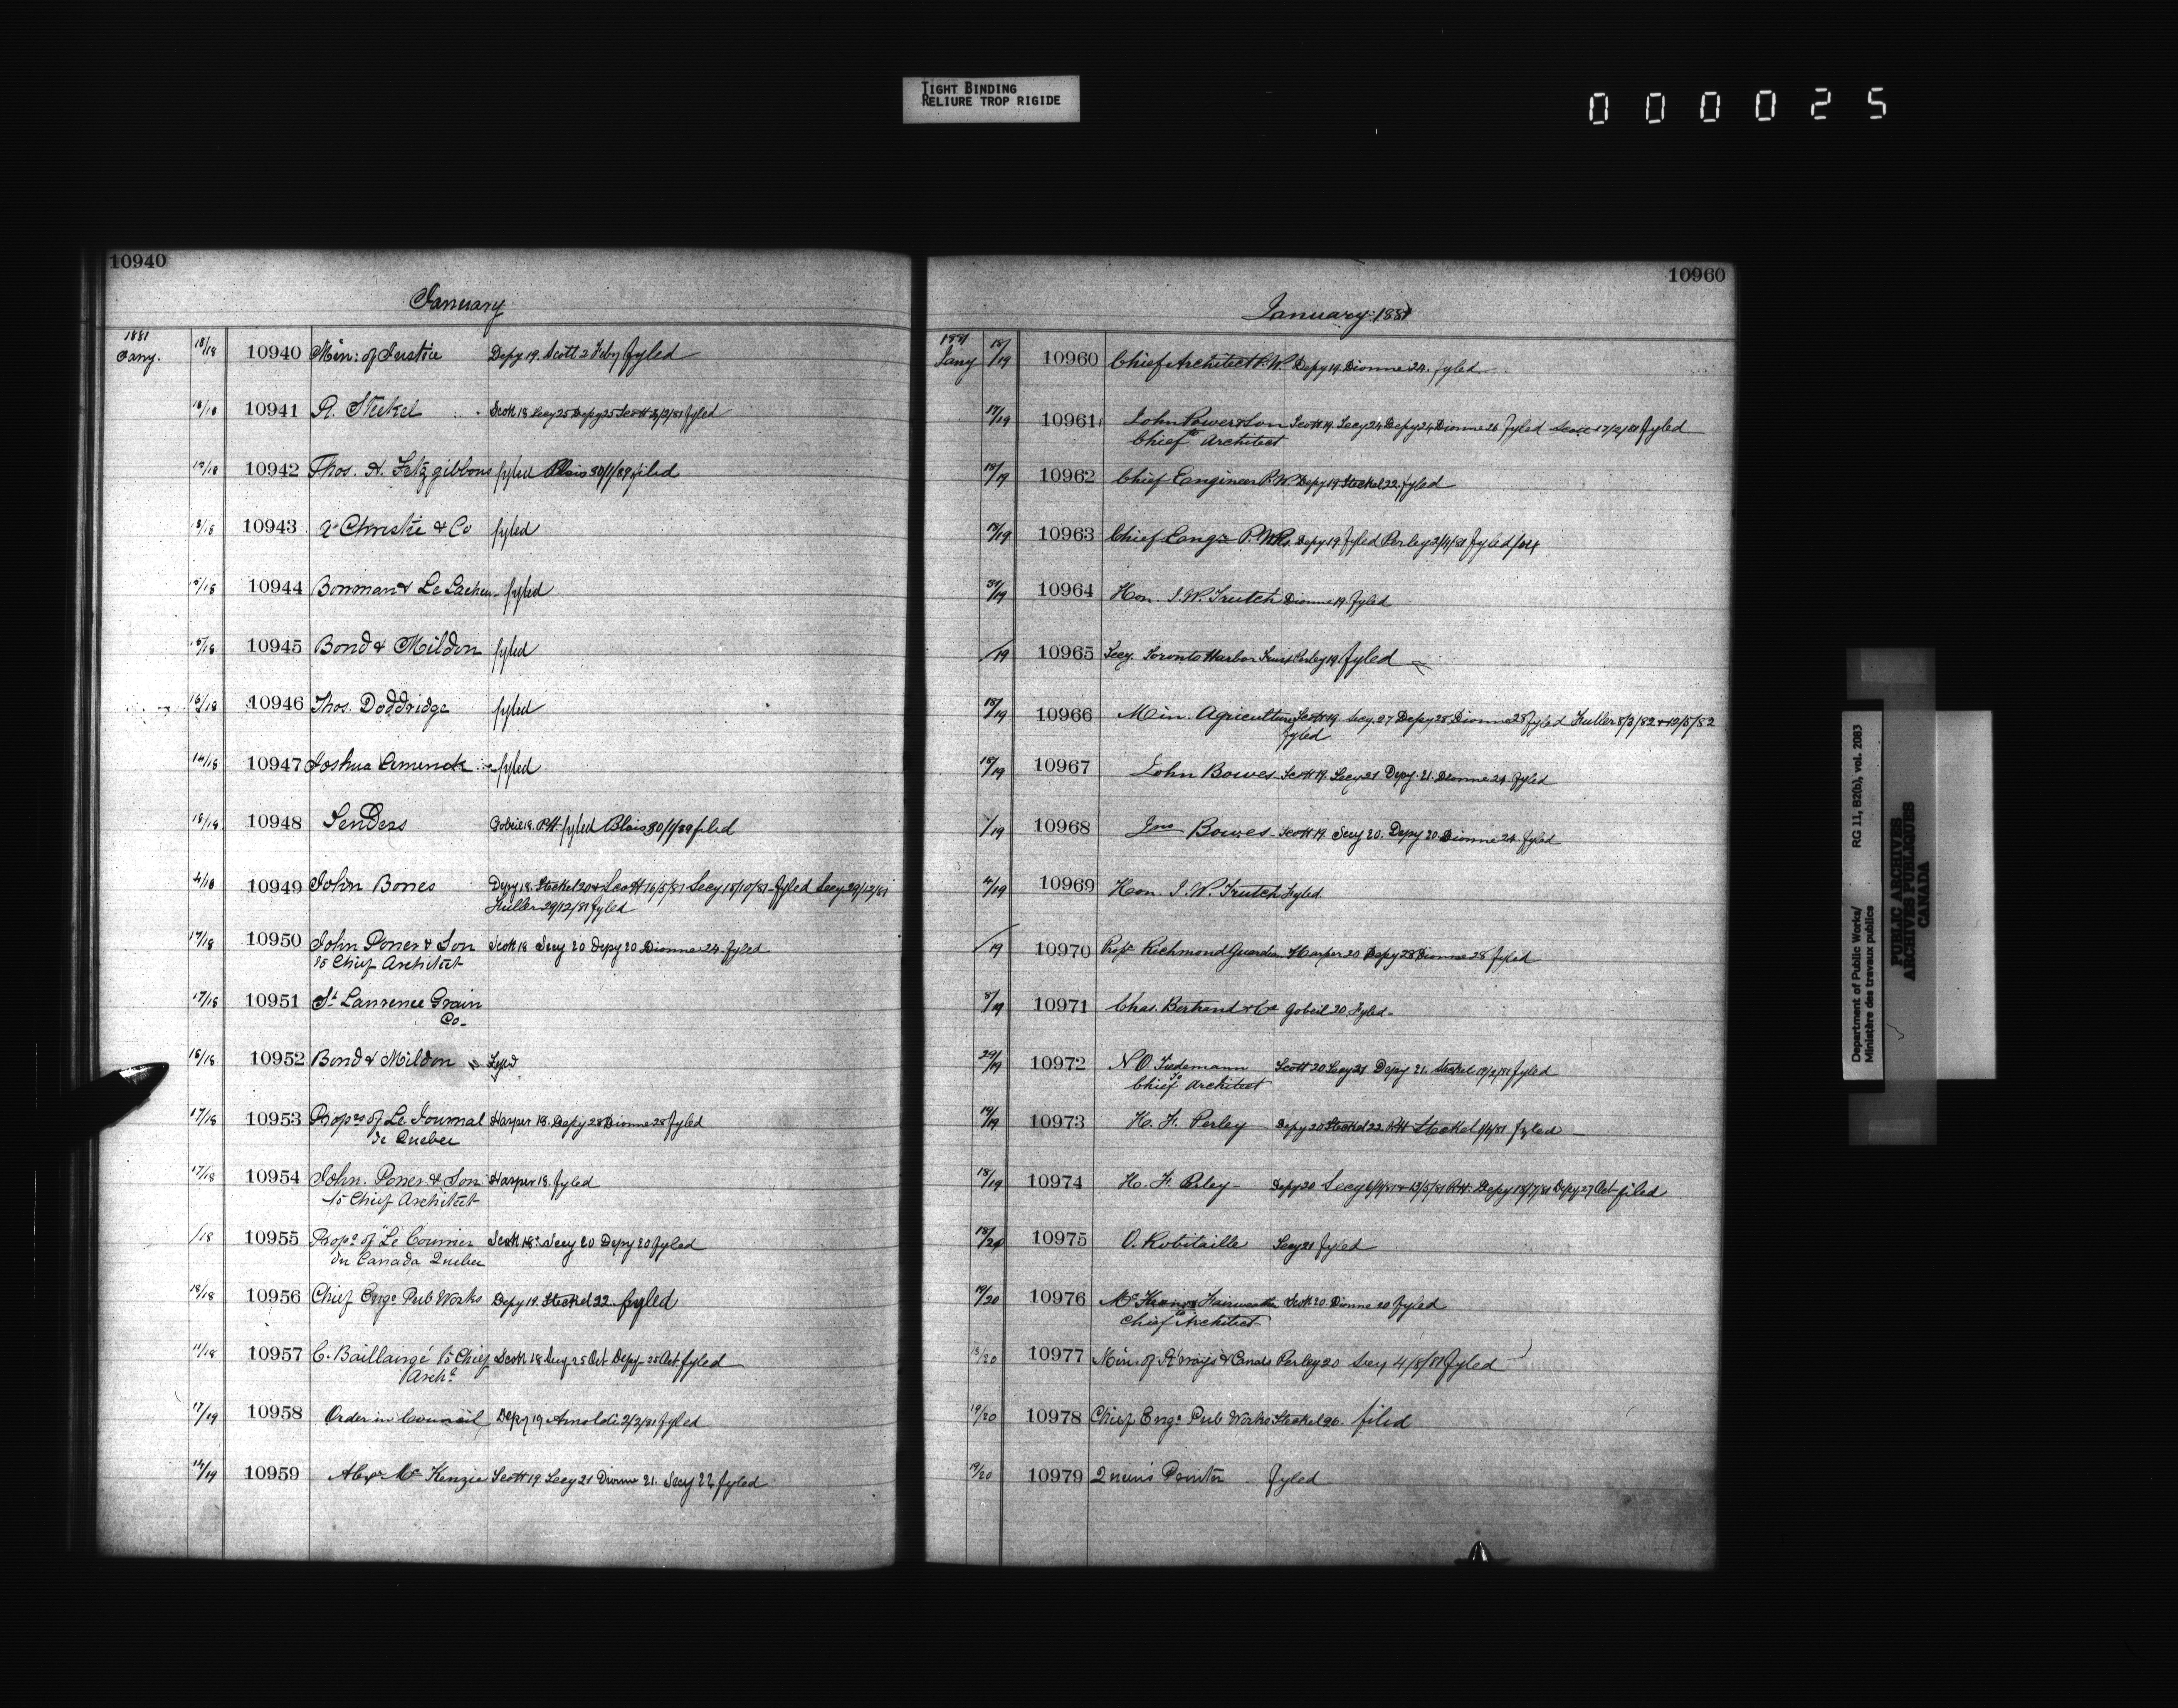 TIGHT BINDING
RELIURE TROP RIGIDE
000025
10940
January
1881
Jany. 18/18 10940 Min: of Justice Depy 19. Scott 2 Feby fyled
18/18 10941 R. Steckel Scott 18 Secy 25 Depy 25 Scott 3/2/81 fyled
12/18 10942 Thos. H. Fitzgibbons fyled Blais 30/1/89 filed
10943 Christie & Co fyled
10944 Bowman & fyled
10945 Bond & Mildon fyled
10946 Thos. Doddridge fyled
14/18 10947 Joshua fyled
18/18 10948 Tenders Gobeil 18. fyled Blais 30/1/89 filed
4/18 10949 John Bowes Depy 18. Steckel 20 & Scott 16/5/81 Secy 18/10/81 fyled Secy 29/12/81
Fuller 29/12/81 fyled
17/18 10950 John Power & Son Scott 18 Secy 20 Depy 20 Dionne 24 fyled
to Chief Architect
17/18 10951 St Lawrence Grain
Co.
18/18 10952 Bond & Mildon Fyled
17/18 10953 Proprs of Le Journal Harper 18. Depy 28 Dionne 28 fyled
de Quebec
17/18 10954 John. Power & Son Harper 18. fyled
to Chief Architect
/18 10955 Propr of "Le Courrier Scott 18. Secy 20 Depy 20 fyled
du Canada Quebec
18/18 10956 Chief Engr Pub Works Depy 19. Steckel 22 fyled
11/18 10957 C. Baillairgé to Chief Scott 18 Secy 25 Oct Depy 25 Oct fyled
Archt
17/19 10958 Order in Council Depy 19 Arnoldi 2/2/81 fyled
14/19 10959 Alexr McKenzie Scott 19 Secy 21 Dionne 21. Secy 22 fyled
10960
January 1881
1881
Jany 18/19 10960 Chief Architect P.W. Depy 19 Dionne 24. fyled
17/19 10961 John Power & Son Scott 19. Secy 24 Depy 24 Dionne 26 fyled Scott 17/2/81 fyled
Chief to Architect
18/19 10962 Chief Engineer P.W. Depy 19 Steckel 22. fyled
18/19 10963 Chief Engr P. Wks. Depy 19 fyled Perley 2/4/81 fyled
31/19 10964 Hon. J. W. Trutch Dionne 19. fyled
/19 10965 Secy. Toronto Harbor Trust Perley 19 fyled
18/19 10966 Min. Agriculture Scott 19. Secy. 27 Depy 28 Dionne 28 fyled Fuller 8/3/82 & 12/5/82
fyled
18/19 10967 John Bowes Scott 19. Secy 21 Depy. 21. Dionne 24 fyled
/19 10968 Jno Bowes Scott 19. Secy 20. Depy 20 Dionne 24 fyled
4/19 10969 Hon. J. W. Trutch Fyled.
/19 10970 Propr Richmond Guardian Harper 20 Depy 28 Dionne 28 fyled
8/19 10971 Chas. Bertrand & Co Gobeil 20. Fyled
29/19 10972 N O. Tiedemann Scott 20 Secy 21 Depy 21. Steckel 19/2/81 fyled
Chief to Architect
19/19 10973 H. F. Perley Depy 20 Steckel 22 Steckel fyled
18/19 10974 H. F. Perley Depy 20 Secy 13/5/81 Depy 18/7/81 Depy 27 Oct filed
18/20 10975 O. Robitaille Secy 21 fyled
19/20 10976 Fairweather Scott 20 Dionne 20 fyled
to Chief Architect
13/20 10977 Min. of R'ways & Canals Perley 20 Secy 4/8/81 fyled
19/20 10978 Chief Engr Pub Works Steckel 20. filed
19/20 10979 Queen's Printer fyled
Department of Public Works/
Ministère des travaux publics
RG 11, B2(b), vol. 2083
PUBLIC ARCHIVES
ARCHIVES PUBLIQUES
CANADA